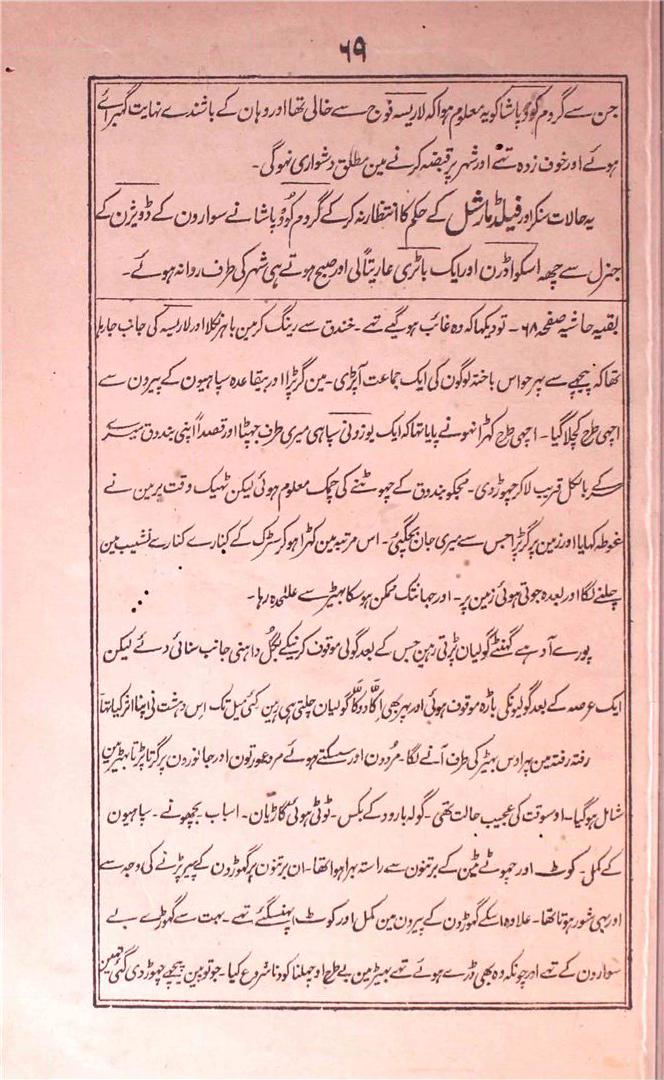 ۶۹
جن سے گردم کوؤ پاشا کو یہ معلوم ہوا کہ لاریسہ فوج سے خالی تھا اور وہان کے باشندے نہایت گہبرائے
ہوئے اور خوف زدہ تہے اور شہر پر قبضہ کرنے مین مطلق دشواری نہوگی۔
یہ حالات سنکر اور فیلڈ مارشل کے حکم کا انتظار نہ کرکے گردم کوؤ پاشا نے سوارون کے ڈویژن کے
جنرل سے چہہ اسکواڈرن اور ایک باٹری عاریتاً لی اور صبح ہوتے ہی شہر کی طرف روانہ ہوئے۔
بقیہ حاشیہ صفحہ ۶۸۔ تو دیکہا کہ وہ غائب ہوگیے تہے۔ خندق سے رینگ کر مین باہر نکلا اور لاریسہ کی جانب جارہا
تہا کہ پیچہے سے پہر حواس باختہ لوگون کی ایک جماعت آپڑی۔ مین گر پڑا اور بیقاعدہ سپاہیون کے پیرون سے
اچہی طرح کچلا گیا۔ اچہی طرح کہڑا نہونے پایا تہا کہ ایک یوزونی سپاہی میری طرف جہپٹا اور قصداً اپنی بندوق میرے
سر کے بالکل قریب لاکر چہوڑدی۔ مجہکو بندوق کے چہوٹنے کی چمک معلوم ہوئی لیکن ٹہیک وقت پر مین نے
غوطہ کہایا اور زمین پر گر پڑا جس سے میری جان بچگئی۔ اس مرتبہ مین کہڑا ہوکر سڑک کے کنارے کنارے نشیب مین
چلنے لگا اور بعدہ جوتی ہوئی زمین پر۔ اور جہانتک ممکن ہوسکا بہیڑ سے علٰحدہ رہا۔
پورے آدہے گہنٹے گولیان پڑتی رہین جس کے بعد گولی موقوف کرنیکے بگل داہنی جانب سنائی دئے لیکن
ایک عرصہ کے بعد گولیونکی باڑہ موقوف ہوئی اور پہر بھی اِکّا دُکّا گولیان چلتی ہی رہین کئی میل تک اس دہشت نے اپنا اثر کیا تہا
رفتہ رفتہ مین پہر اوس بہیڑ کی طرف آنے لگا۔ مُردون اور سسکتے ہوئے مرد عورتون اور جانورون پر گرتا پڑتا بہیڑ مین
شامل ہوگیا۔ اوسوقت کی عجیب حالت تھی۔ گولہ بارود کے بکس۔ ٹوٹی ہوئی گاڑیان۔ اسباب بچہونے۔ سپاہیون
کے کمل۔ کوٹ اور چہوٹے ٹین کے برتنون سے راستہ بہرا ہوا تہا۔ ان برتنون پر گہوڑون کے پیر پڑنے کی وجہ سے
اور بہی شور ہوتا تھا۔ علاوہ اسکے گہوڑون کے پیرون مین کمل اور کوٹ پہنسگئے تہے۔ بہت سے گہوڑے بے
سوارون کے تہے اور چونکہ وہ بھی ڈرے ہوئے تہے بہیڑ مین بے طرح اوچہلنا کودنا شروع کیا۔ جو توپین پیچہے چہوڑدی گئی تہین